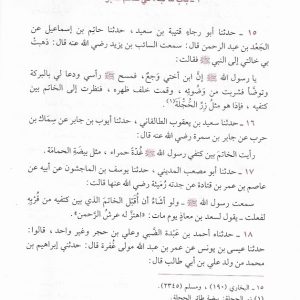 ١٥ - حدثنا أبو رجاء قتيبة بن سعيد، حدثنا حاتم بن إسماعيل عن
الجَعْد بن عبد الرحمن قال: سمعت السائب بن يزيد رضي الله عنه قال: ذهبتْ
بي خالتي إلى النبي ﷺ فقالت:
يا رسول الله ﷺ إنَّ ابن أختي وَجِعٌ، فمسح ﷺ رأسي ودعا لي بالبركة
وتوضَّأ فشربت من وَضُوئِه، وقمت خلف ظهره، فنظرت إلى الخاتم بين
كتفيه، فإذا هو مثلُ زِرِّ الحَجَلَة(١).
١٦ - حدثنا سعيد بن يعقوب الطالقاني، حدثنا أيوب بن جابر عن سِمَاك بن
حرب عن جابر بن سمرة رضي الله عنه قال:
رأيت الخاتم بين كتفي رسول الله ﷺ غُدَّة حمراء، مثل بيضة الحمامة.
١٧ - حدثنا أبو مصعب المديني، حدثنا يوسف بن الماجشون عن أبيه عن
عاصم بن عمر بن قتادة عن جدته رُمَيْثَة رضي الله عنها قالت:
سمعت رسول الله ﷺ - ولو أشاءُ أن أُقَبِّلَ الخَاتَم الذي بين كتفيه من قُرْبِهِ
لفعلت - يقول لسعد بن معاذٍ يوم مات: «اهتزَّ له عرشُ الرَّحمن».
١٨ - حدثنا أحمد بن عَبْدَة الضَّبي وعلي بن حجر وغير واحد، قالوا:
حدثنا عيسى بن يونس عن عمر بن عبد الله مولى غُفرة قال: حدثني إبراهيم بن
محمد من ولد علي بن أبي طالب قال:
١٥ - البخاري (١٩٠)، ومسلم (٢٣٤٥).